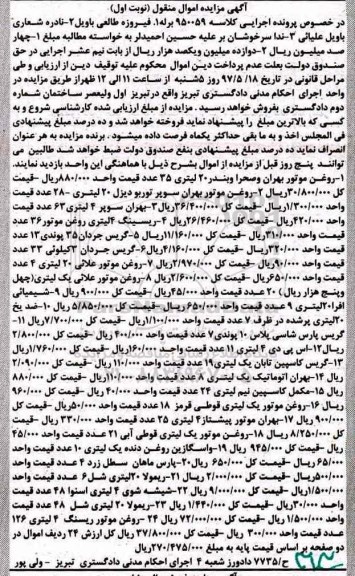 آگهی مزایده اموال منقول (نوبت اول)
در خصوص پرونده اجرایی کلاسه ۹۵۰۰۵۹ برله۱. فیروزه طالعی باویل۲-نادره شعاری
باویل علیائی ۳-ندا سرخوشان بر علیه حسین احمدیلر به خواسته مطالبه مبلغ ۱-چهار
صد میلیون ریال ۲-دوازده میلیون ویکصد هزار ریال از بابت نیم عشر اجرایی در حق
صندوق دولت بعلت عدم پرداخت دین اموال محکوم علیه توقیف دین از ارزیابی و طی
مراحل قانونی در تاریخ ۹۷/۵/۱۸ روز ۵شنبه از ساعت ۱۱ الی ۱۲ ظهراز طریق مزایده در
واحد اجرای احکام مدنی دادگستری تبریز واقع درتبریز اول ولیعصر ساختمان شماره
دوم دادگستری بفروش خواهد رسید. مزایده از مبلغ ارزیابی شده کارشناسی شروع و به
کسی که بالاترین مبلغ را پیشنهاد نماید فروخته خواهد شد و ده درصد مبلغ پیشنهادی
فی المجلس اخذ و به ما بقی حداکثر یکماه فرصت داده میشود. برنده مزایده به هر عنوان
انصراف نماید ده درصد مبلغ پیشنهادی بنفع صندوق دولت ضبط خواهد شد طالبین می
توانند پنج روز قبل از مزایده از اموال بشرح ذیل با هماهنگی این واحد بازدید نمایند.
۱-روغن موتور بهران وصحرا ویندر۲۰ لیتری ۳۵ عدد قیمت واحد ۸۸۰/۰۰۰ریال -قیمت
کل ۳۰/۸۰۰/۰۰۰ریال ۲-روغن موتور بهران سوپر توربو دیزل ۲۰ لیتری -۲۸ عدد قیمت
واحد ۱/۳۰۰/۰۰۰ریال -قیمت کل ۳۶/۴۰۰/۰۰۰ریال ۳-بهران سوپر ۴ لیتری۶۳ عدد قیمت
واحد ۴۲۰/۰۰۰ریال -قیمت کل ۲۶/۴۶۰/۰۰۰ریال ۴-ریسینگ ۴لیتری روغن موتور۳۶ عدد
قیمت واحد ۳۱۰/۰۰۰ریال -قیمت کل ۱۱/۱۶۰/۰۰۰ریال ۵-گریس جردان۳۵ پوندی۱۳ عدد
قیمت واحد ۳۲۰/۰۰۰ریال -قیمت کل ۴/۱۶۰/۰۰۰ریال۶-گریس جردان ۱کیلوئی ۳۳ عدد
قیمت واحد ۹۰/۰۰۰ریال -قیمت کل ۲/۹۷۰/۰۰۰ریال ۷-روغن موتور علائی ۲۰ لیتری ۴ عدد
قیمت واحد ۶۵۰/۰۰۰ریال -قیمت کل ۲/۶۰۰/۰۰۰ریال ۸-روغن موتور علائی یک لیتری(چهل
وپنج هزار ریال) ۲۰ عدد قیمت واحد ۴۵/۰۰۰ریال -قیمت کل ۹۰۰/۰۰۰ ریال ۹-شیمیائی
افرا۲۰لیتری ۹ عدد قیمت واحد ۶۵۰/۰۰۰ ریال -قیمت کل ۵/۸۵۰/۰۰۰ ریال ۱۰-ضد یخ
۲۰لیتری پرشده در ظرف ۷ عدد قیمت واحد ۱/۱۱۰/۰۰۰ریال -قیمت کل ۷/۷۷۰/۰۰۰ریال ۱۱-
گریس پارس شاسی پلاس ۱۰ پوندی۷ عدد قیمت واحد ۴۰۰/۰۰۰ ریال -قیمت کل ۲/۸۰۰/۰۰۰
ریال۱۲-اس پی دی ۴ لیتری ۱۱ عدد قیمت واحد ۱۶۰/۰۰۰ریال -قیمت کل ۱/۷۶۰/۰۰۰ریال
۱۳-گریس کاسپین تابان یک لیتری۱۹ عدد قیمت واحد ۱۱۰/۰۰۰ ریال -قیمت کل ۲/۰۹۰/۰۰۰
ریال ۱۴-بهران اتوماتیک یک لیتری ۸ عدد قیمت واحد ۱۱۰/۰۰۰ریال -قیمت کل ۸۸۰/۰۰۰
ریال ۱۵-مکمل کاسپین نیم لیتری ۲۴ عدد قیمت واحد ۴۰/۰۰۰ ریال -قیمت کل ۹۶۰/۰۰۰
ریال ۱۶-روغن موتور یک لیتری قوطی قرمز ۱۸ عدد قیمت واحد ۵۰/۰۰۰ریال -قیمت کل
۹۰۰/۰۰۰ ریال ۱۷-بهران موتور پیشتاز۴ لیتری ۲۵ عدد قیمت واحد ۳۳۰/۰۰۰ ریال -قیمت
کل ۸/۲۵۰/۰۰۰ ریال ۱۸-روغن موتور یک لیتری قوطی آبی ۲۱ عدد قیمت واحد ۴۵/۰۰۰
ریال -قیمت کل ۹۴۵/۰۰۰ ریال ۱۹-واسگازین روغن دنده یک لیتری ۱۰ عدد قیمت واحد
۶۵/۰۰۰ ریال -قیمت کل ۶۵۰/۰۰۰ ریال۲۰-پارس ماهان سطل زرد ۴ عدد قیمت واحد
۵۰۰/۰۰۰ریال -قیمت کل ۲/۰۰۰/۰۰۰ ریال ۲۱-ریمولا ۲۰لیتری شل۶ عدد قیمت واحد
۱/۵۰۰/۰۰۰ریال -قیمت کل ۹/۰۰۰/۰۰۰ ریال ۲۲-شیشه شوی ۴ لیتری اسنوا ۴۸ عدد قیمت
واحد ۳۰/۰۰۰ریال -قیمت کل ۱/۴۴۰/۰۰۰ ریال ۲۳-ریمولا ۲۰ لیتری شل ۴۸ عدد قیمت
واحد ۱/۵۰۰/۰۰۰ ریال -قیمت کل ۷۲/۰۰۰/۰۰۰ ریال ۲۴ -روغن موتور ریسنگ ۴ لیتری ۱۲۶
عدد قیمت واحد ۳۰۰/۰۰۰ ریال -قیمت کل ۳۷/۸۰۰/۰۰۰ ریال کل ارزش ۲۴ ردیف اموال در
دو صفحه بر اساس قیمت پایه به مبلغ ۲۷۰/۴۷۵/۰۰۰ریال
ح/۷۷۳۵ دادورز شعبه ۴ اجرای احکام مدنی دادگستری تبریز - ولی پور